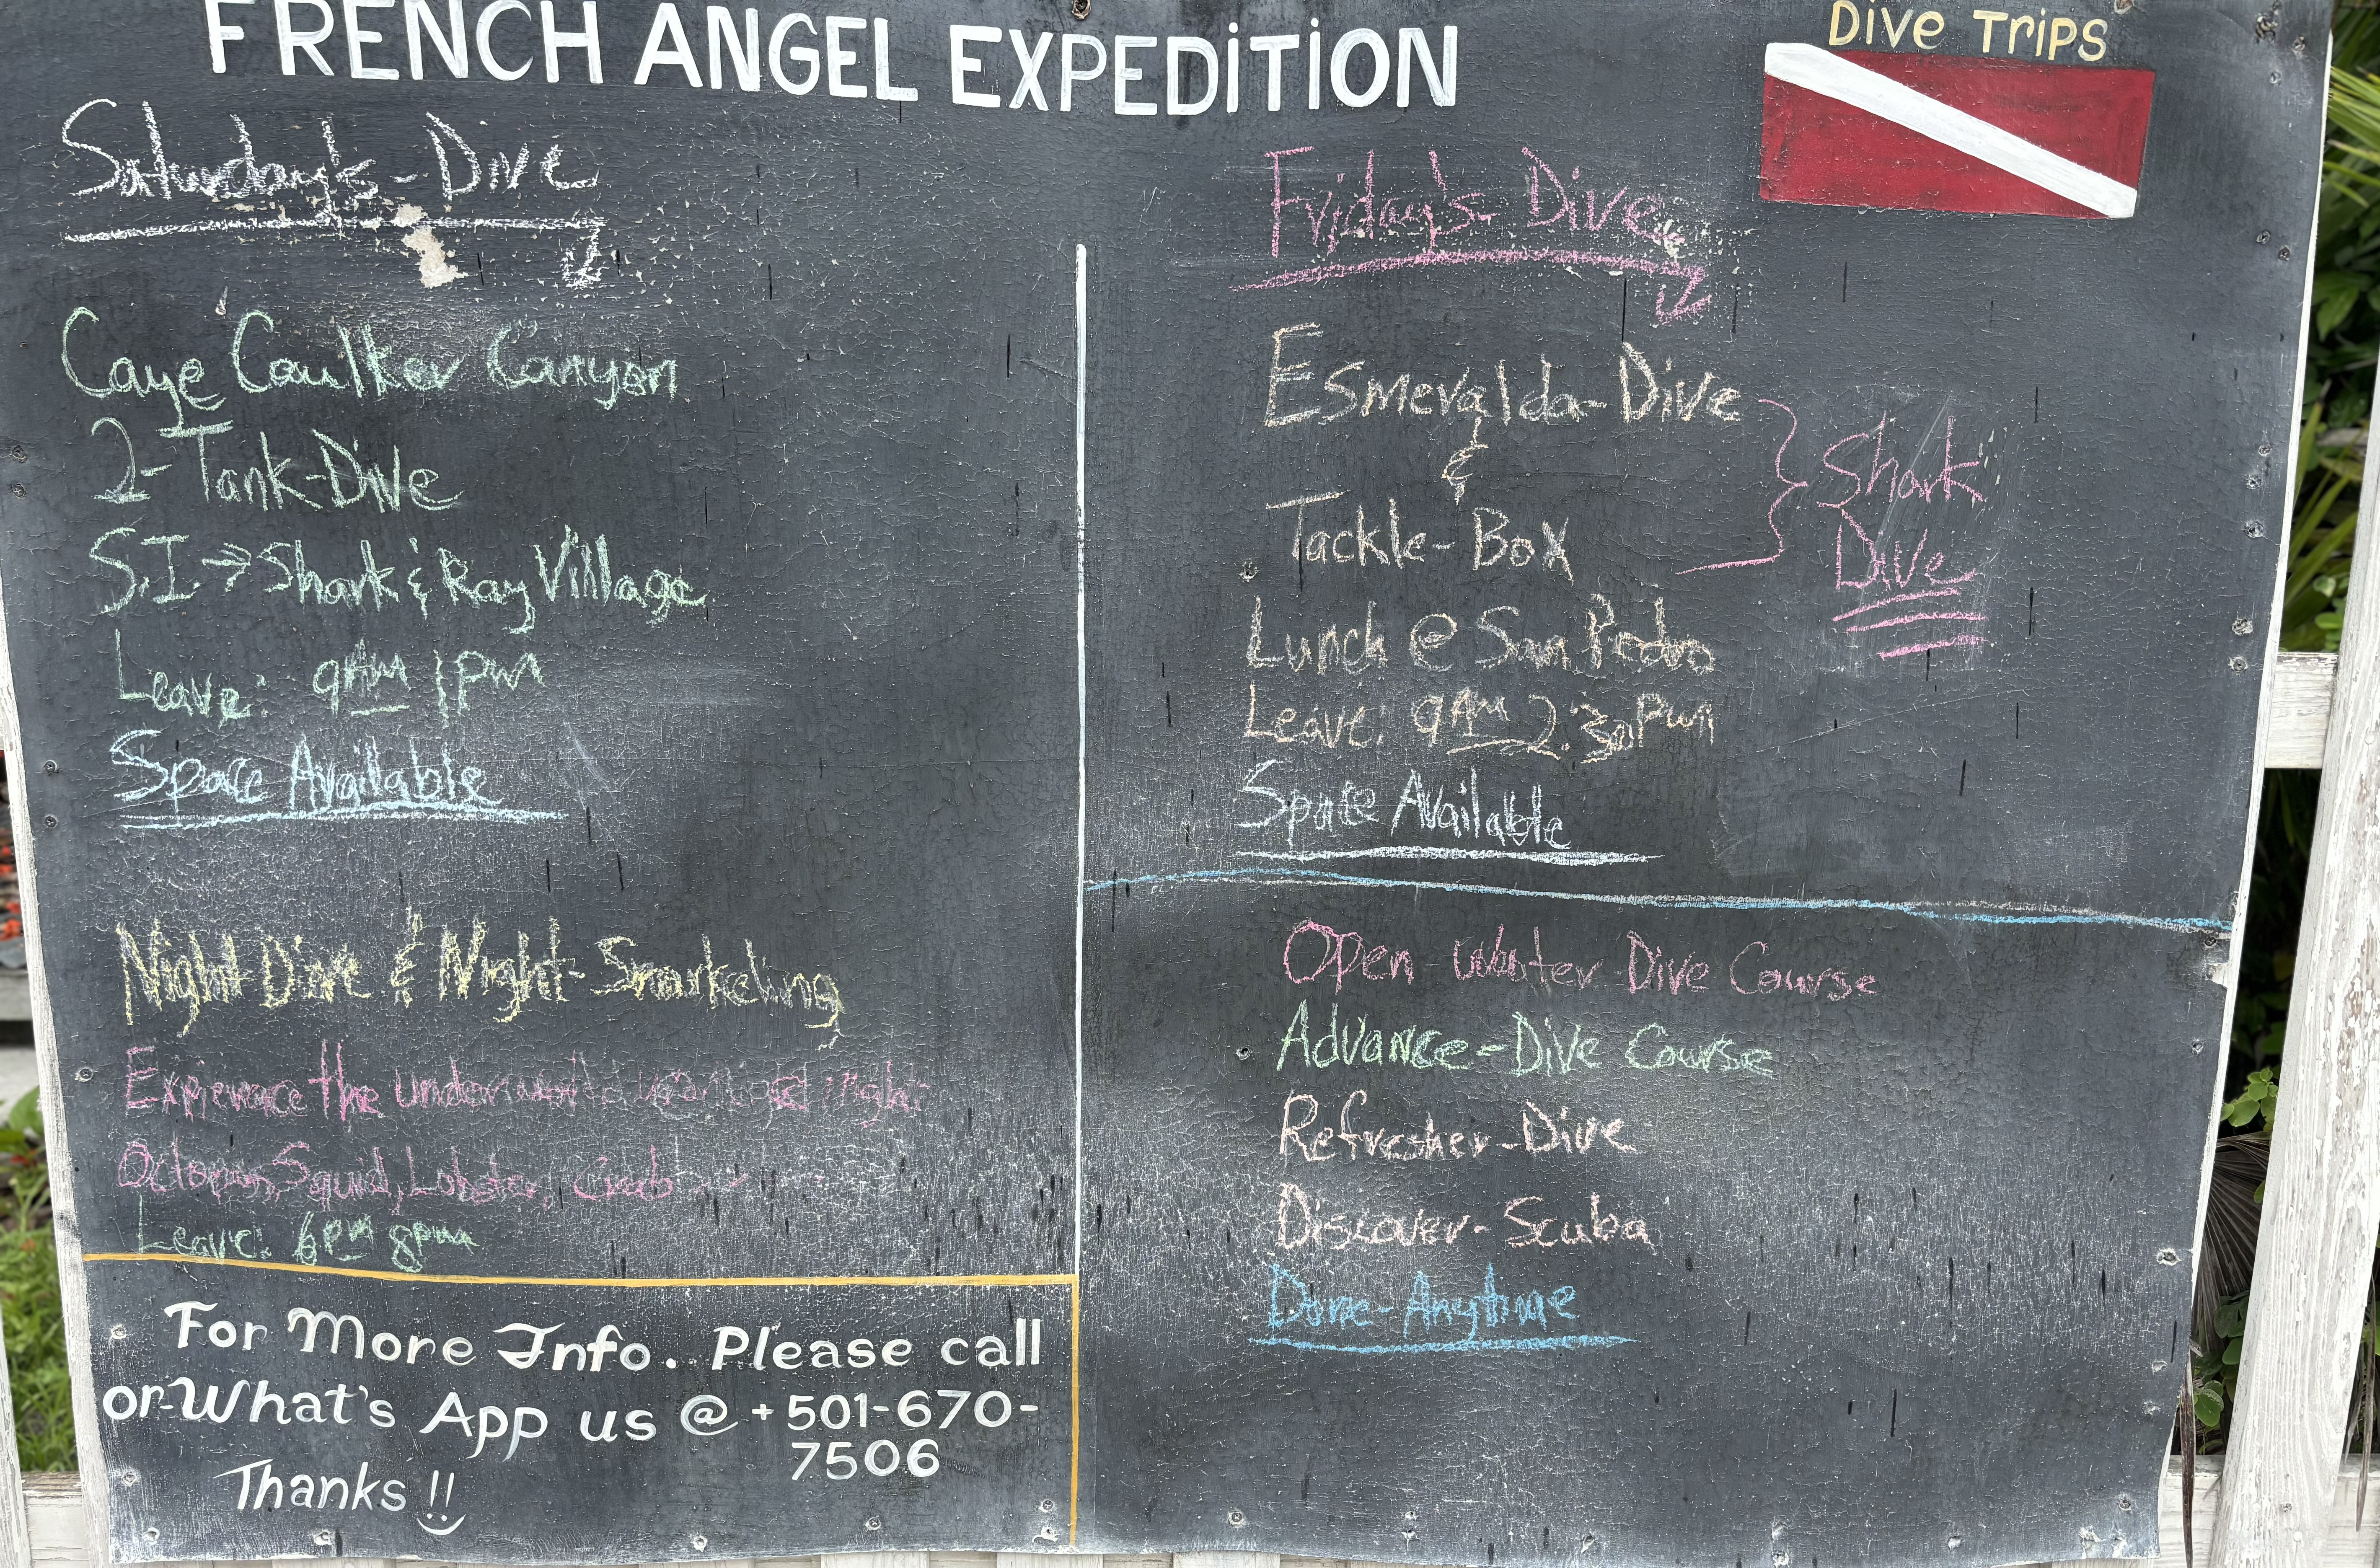 FRENCH ANGEL EXPEDITION
Dive Trips
Saturday's-Dive
Caye Caulker Canyon
2-Tank-Dive
S.I. → Shark & Ray Village
Leave: 9AM 1pm
Space Available
Night Dive & Night-Snorkeling
Experience the
Octopus, Squid, Lobster, Crab
Leave: 6pm 8pm
For More Info. Please call
or What's App us @ +501-670-
7506
Thanks !!
Friday's-Dive
Esmeralda-Dive
&
Tackle-Box
Shark
Dive
Lunch @ San Pedro
Leave: 9AM 2:30pm
Space Available
Open-Water-Dive Course
Advance-Dive Course
Refresher-Dive
Discover-Scuba
Done-Anytime